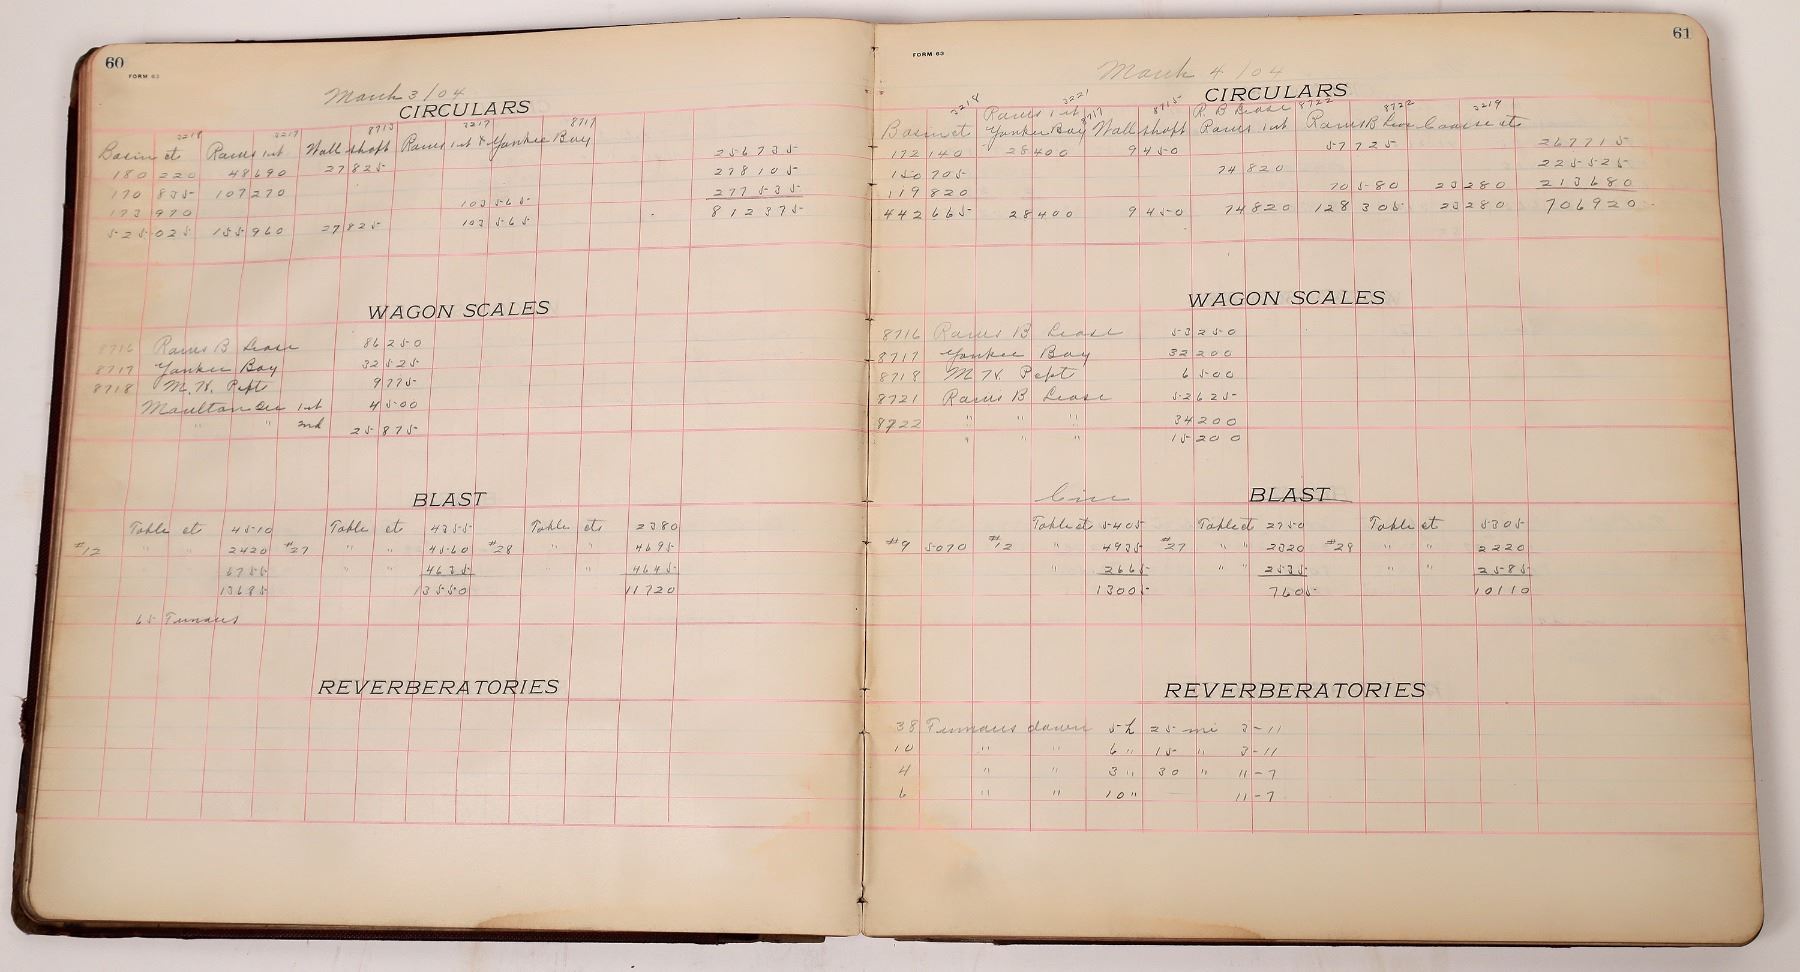 60
FORM 63
March 3/04
CIRCULARS
3218 3217 8713 3217 8717
Basin ct Rarus 1st Wall shaft Rarus 1st & Yankee Boy
180 220 48690 27825 256735
170 835 107270 278105
173 970 103565 277535
525 025 155960 27825 103565 812375
WAGON SCALES
8716 Rarus B Lease 86250
8717 Yankee Boy 32525
8718 M. W. Ppt 9775
Moulton 1st 4500
" " 2nd 25875
BLAST
Table ct 4510 Table ct 4355 Table ct 2380
#12 " " 2420 #27 " " 4560 #28 " " 4695
6755 " " 4635 " " 4645
13685 13550 11720
65 Furnaces
REVERBERATORIES
61
FORM 63
March 4/04
CIRCULARS
3218 3221 8717 8715 8722 8722 3219
Basin ct Rarus 1st Yankee Boy Wall shaft R. B Lease Rarus 1st Rarus B Lease Coarse ct
172 140 28400 9450 57725 267715
150 705 74820 225525
119 820 70580 23280 213680
442 665 28400 9450 74820 128305 23280 706920
WAGON SCALES
8716 Rarus B Lease 53250
8717 Yankee Boy 32200
8718 M. W. Ppt 6500
8721 Rarus B Lease 52625
8722 " " " 34200
" " " 15200
BLAST
Table ct 5405 Table ct 2750 Table ct 5305
#9 5070 #12 " 4935 #27 " " 2320 #28 " " 2220
" 2665 " " 2535 " " 2585
13005 7605 10110
REVERBERATORIES
38 Furnaces down 5 h 25 mi 3-11
10 " " 6 " 15 " 3-11
4 " " 3 " 30 " 11-7
6 " " 10 " 11-7